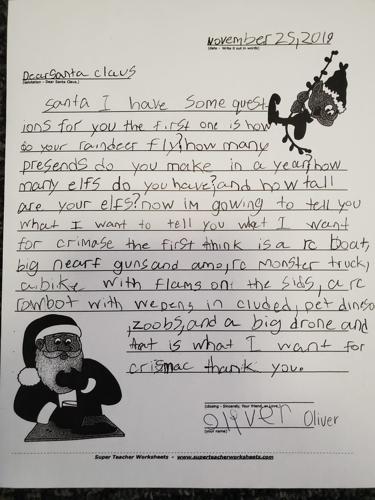 November 25, 2019
(date - Write it out in words)
Dear Santa Claus
(salutation - Dear Santa Claus,)
Santa I have some quest
ions for you the first one is how
do your raindeer fly? how many
presends do you make in a year? how
many elfs do you have? and how tall
are your elfs? now im gowing to tell you
what I want to tell you what I want
for crimase the first think is a rc boat,
big nearf guns and amo, rc monster truck,
a bike with flams on the sids, a rc
rowbot with wepens in cluded, pet dineso
,zoobs, and a big drone and
that is what I want for
crismac thank you.
(closing - Sincerely, Your friend, or Love,)
Oliver Oliver
(your name)
Super Teacher Worksheets - www.superteacherworksheets.com